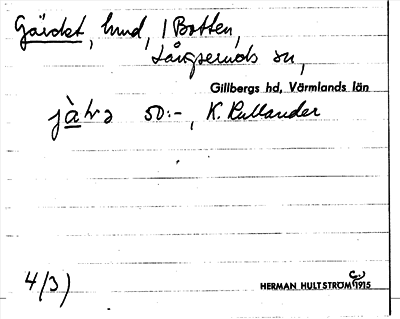 Gärdet, hund, / Botten,
Långseruds sn,
Gillbergs hd, Värmlands län
50:-, K. Rullander
4/3)
HERMAN HULTSTRÖM 1915